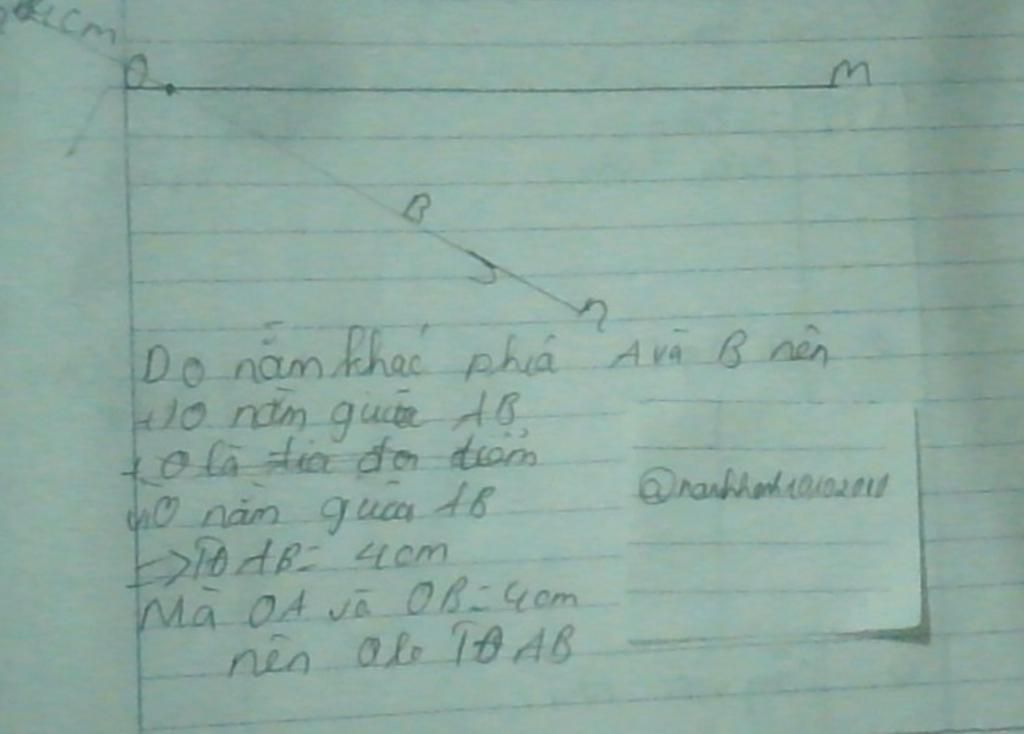 4cm
O M
B
n
Do nằm khác phiá A và B nên
+) O nằm giữa AB
+ O là
O nằm giữa AB
=> TĐ AB = 4cm
Mà OA và OB = 4cm
nên O là TĐ AB